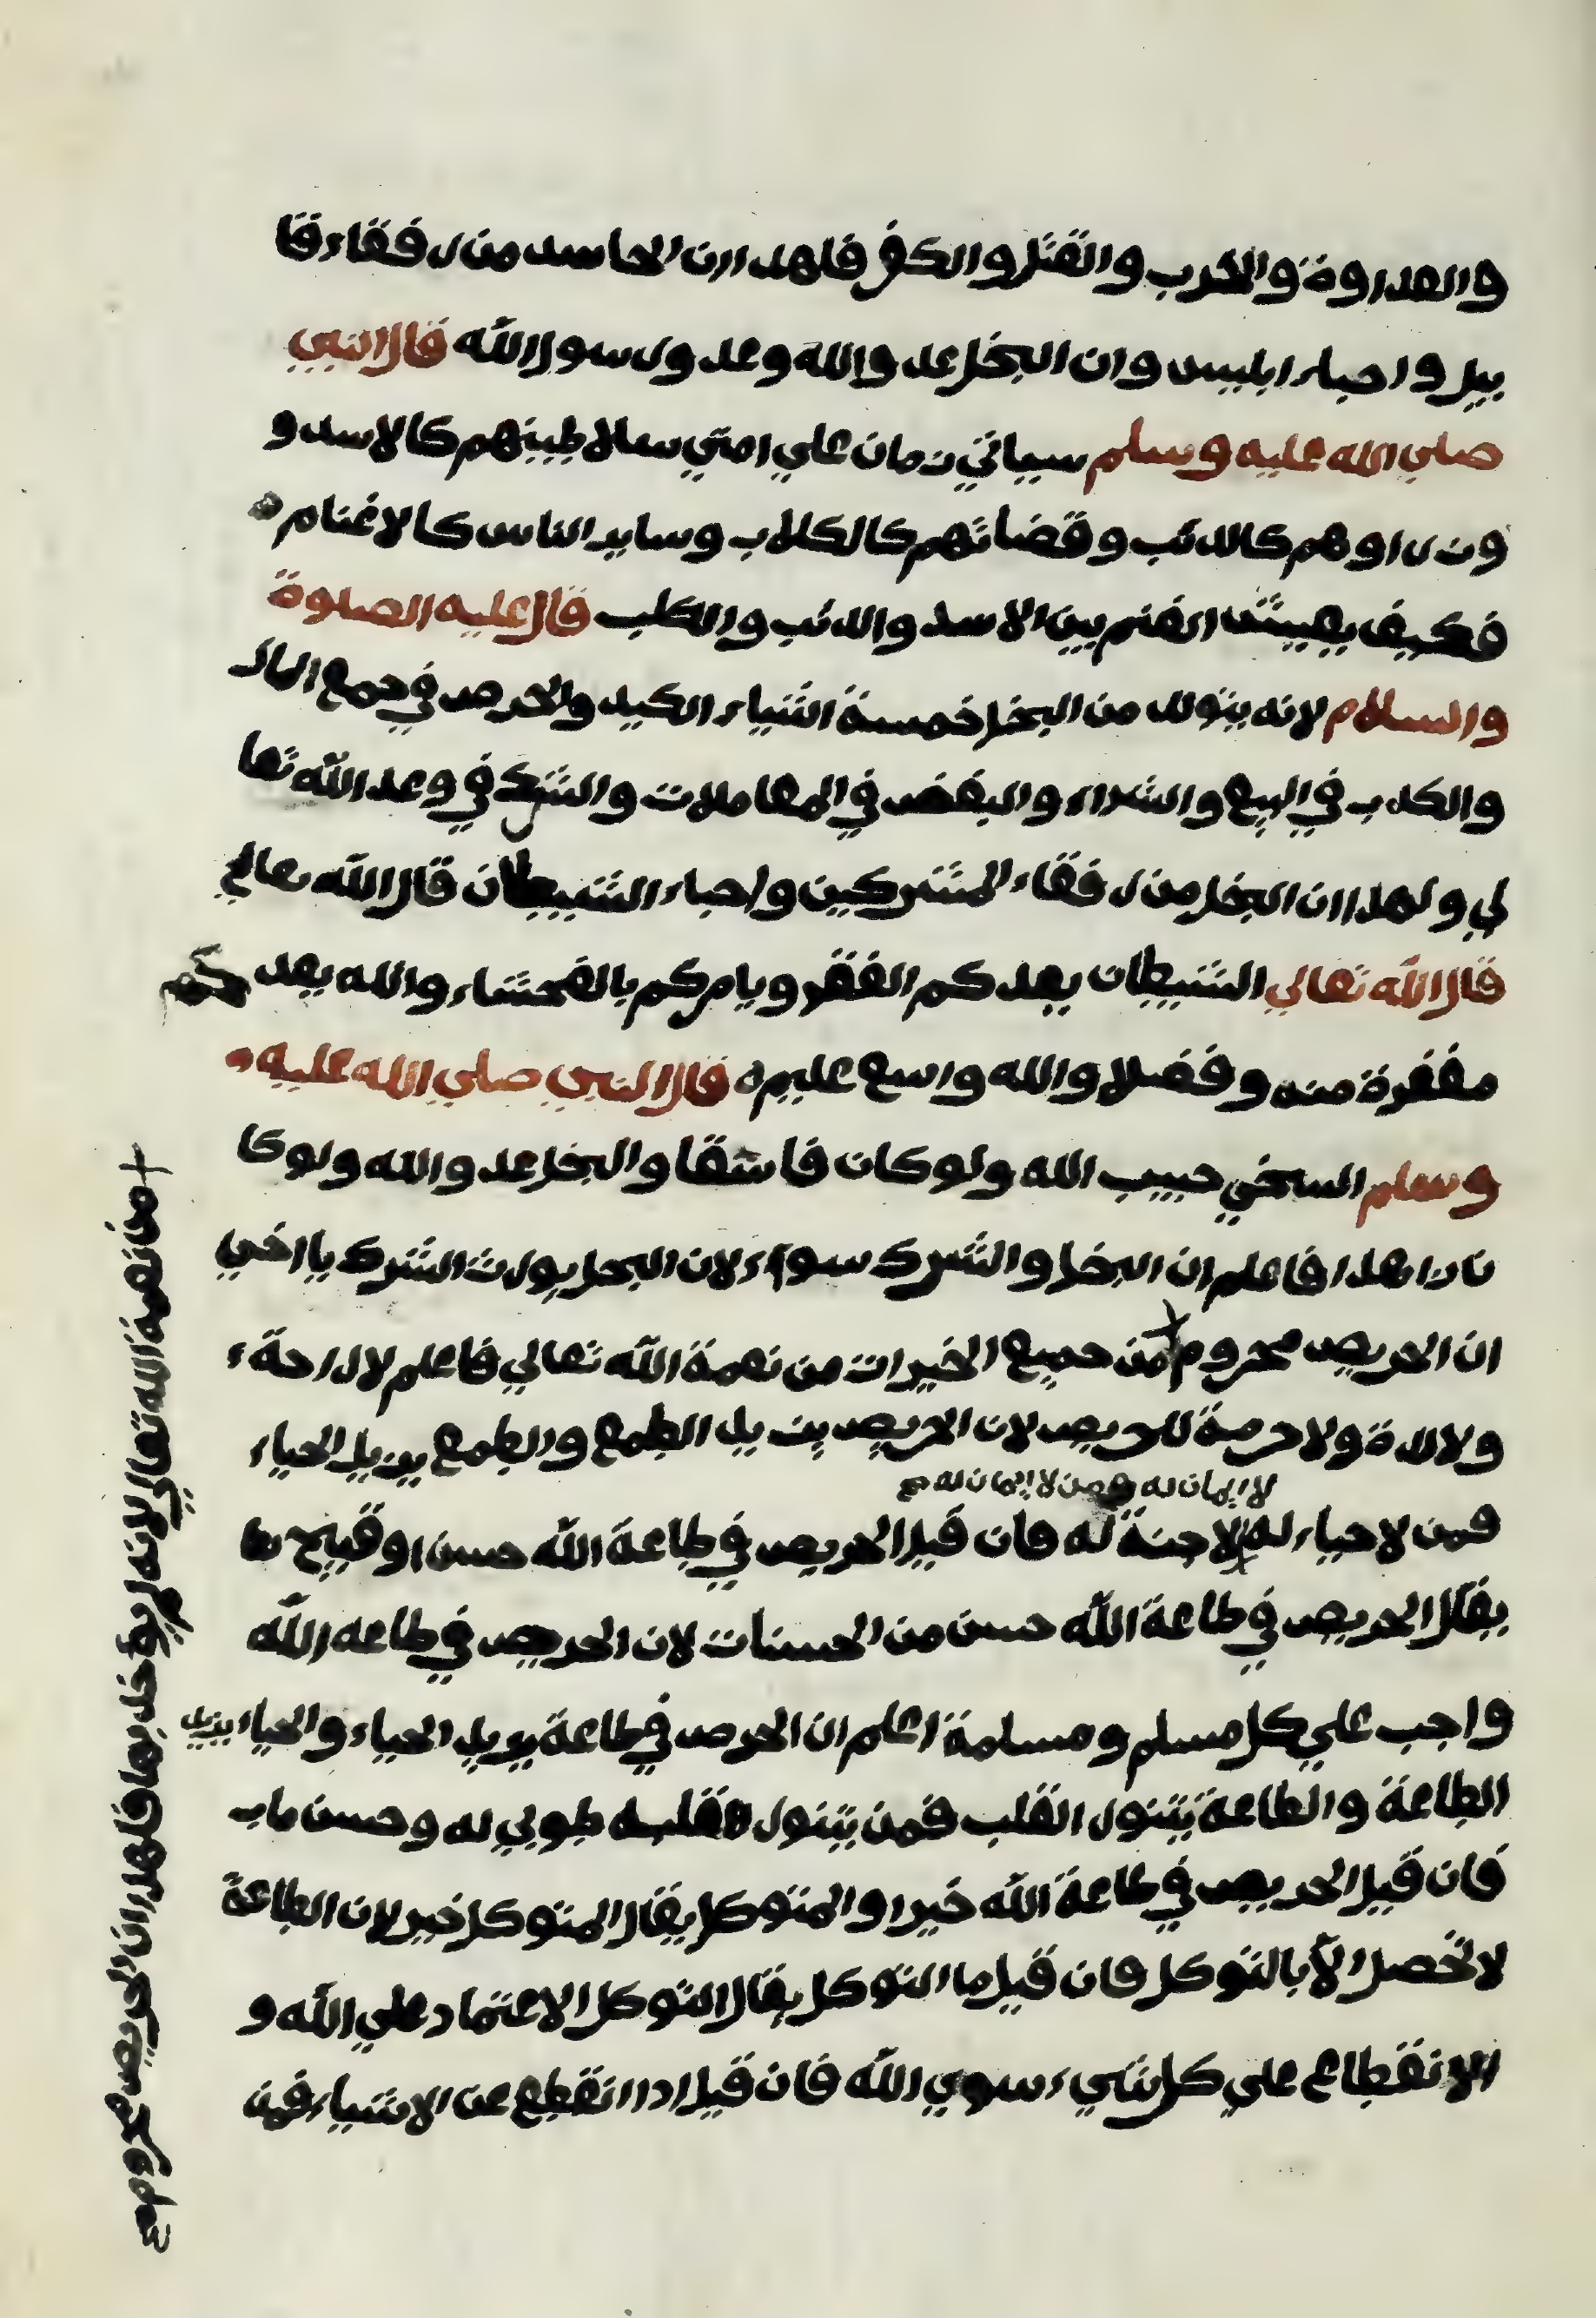 والعداوة والكذب والقتل والكفر فلهذا ان الحاسد من رفقاء قا
بيل واحباء ابليس وان البخل عدو الله وعدو رسول الله قال النبي
صلي الله عليه وسلم سياتي زمان علي امتي سلاطينهم كالاسد و
وزراوهم كالذئب وقضاتهم كالكلاب وساير الناس كالاغنام
فكيف يعيش الغنم بين الاسد والذئب والكلب قال عليه الصلوة
والسلام لانه يتولد من البخل خمسة اشياء الكيد والحرص في جمع المال
والكذب في البيع والشراء والبغض في المعاملات والشك في وعد الله تعا
لي ولهذا ان البخل من رفقاء المشركين واحباء الشيطان قال الله تعالي
قال الله تعالي الشيطان يعدكم الفقر ويامركم بالفحشاء والله يعدكم
مغفرة منه وفضلا والله واسع عليم قال النبي صلي الله عليه
وسلم السخي حبيب الله ولو كان فاسقا والبخل عدو الله ولو كا
ن زاهدا فاعلم ان البخل والشرك سواء لان البخل يورث الشرك يا اخي
ان الحريص محروم من جميع الخيرات من نعمة الله تعالي فاعلم لا راحة
ولا لذة ولا حرمة للحريص لان الحريص يزيل الطمع والطمع يزيل الحياء
لا ايمان له ومن لا ايمان له صح
فمن لا حياء له لا جنة له فان قيل الحريص في طاعة الله حسن او قبيح
يقال الحريص في طاعة الله حسن من الحسنات لان الحريص في طاعة الله
واجب علي كل مسلم ومسلمة اعلم ان الحرص في طاعة يزيل الحياء والحياء يزيل
الطاعة والطاعة يتنور القلب فمن يتنور قلبه طوبي له وحسن ماب
فان قيل الحريص في طاعة الله خير او المتوكل يقال المتوكل خير لان الطاعة
لا تحصل الا بالتوكل فان قيل ما التوكل يقال التوكل الاعتماد علي الله و
الانقطاع علي كل شيء سوي الله فان قيل اذا انقطع عن الاشياء فمن
من نعمة الله تعالي لانه بها فلهذا ان الحريص محروم صح